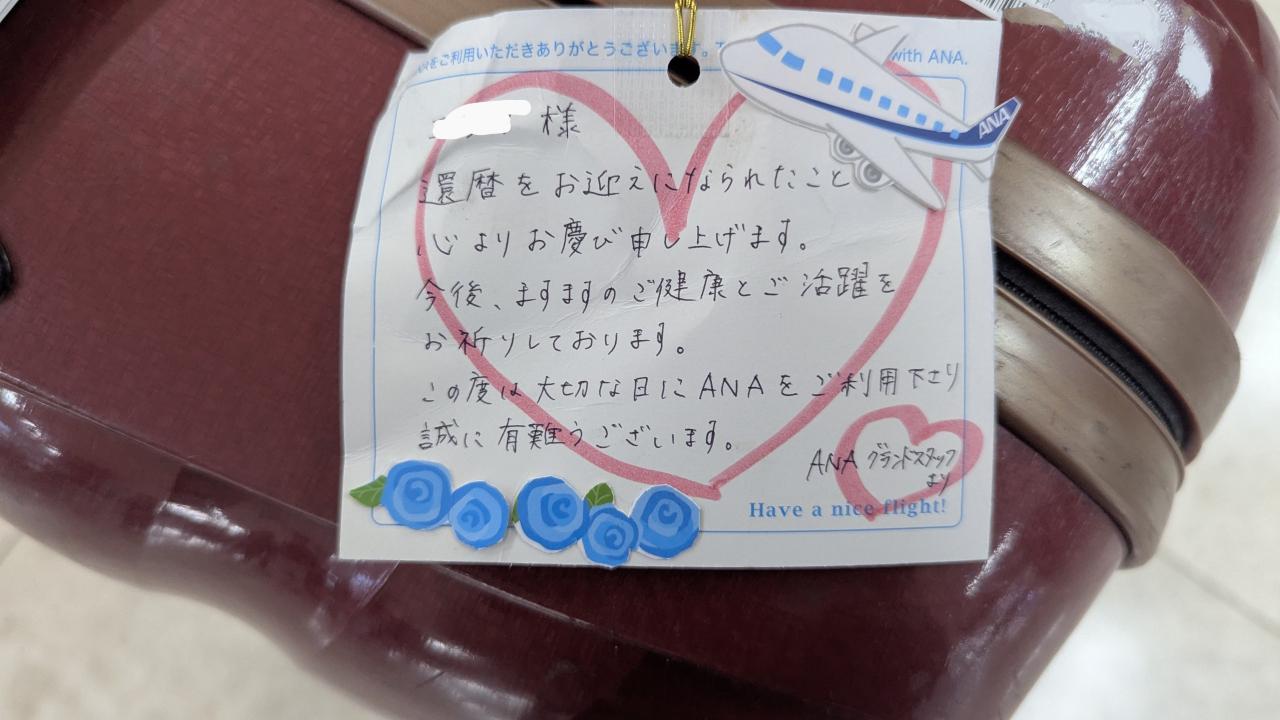 ANAをご利用いただきありがとうございます。
with ANA.
ANA
様
還暦をお迎えになられたこと
心よりお慶び申し上げます。
今後、ますますのご健康とご活躍を
お祈りしております。
この度は大切な日にANAをご利用下さり
誠に有難うございます。
ANA グランドスタッフ
より
Have a nice flight!